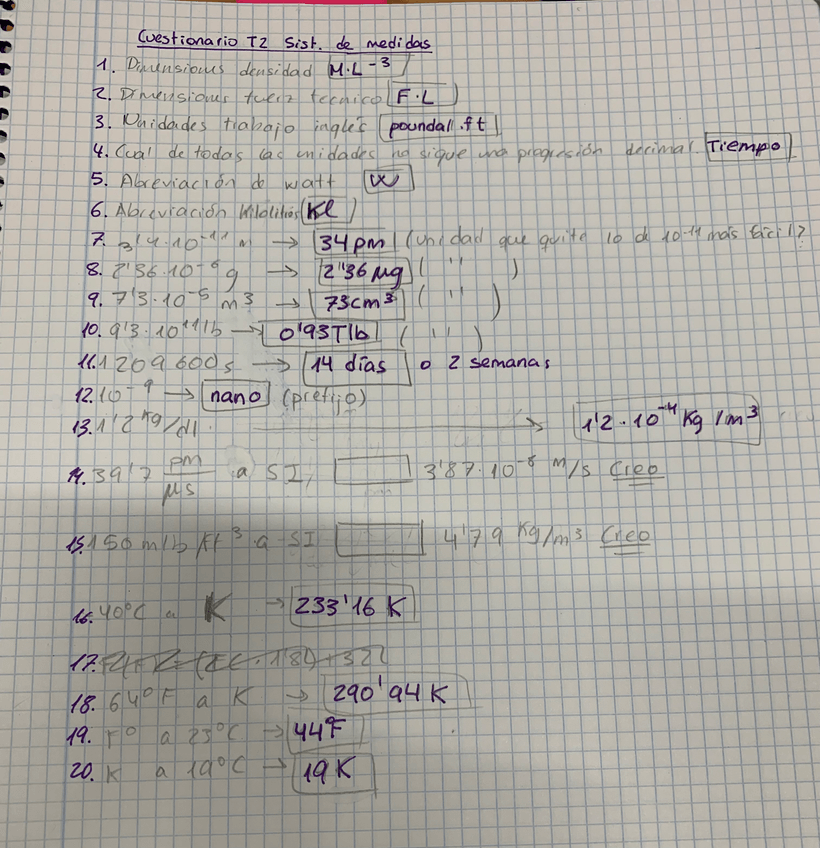 Cuestionario T2 Sist. de medidas
1. Dimensions densidad M·L⁻³
2. Dimensions fuerz tecnico F·L
3. Unidades trabajo inglés poundal.ft
4. Cual de todas las unidades no sigue una progresión decimal Tiempo
5. Abreviación de watt W
6. Abreviación Kilolitros Kl
7. 3'4·10⁻¹¹ m → 34pm (unidad que quite lo de 10⁻¹¹ más fácil?
8. 2'36·10⁻⁶ g → 2'36 μg ( '' )
9. 7'3·10⁻⁵ m³ → 73cm³ ( '' )
10. 9'3·10¹¹ lb → 0'93Tlb ( '' )
11. 1209600s → 14 días o 2 semanas
12. 10⁻⁹ → nano (prefijo)
13. 1'2 kg/dl → 1'2·10⁻⁴ Kg/m³
14. 39'7 pm/μs a SI, 3'87·10⁻⁸ m/s Creo
15. 150 mlb/ft³ a SI 4'79 Kg/m³ Creo
16. 40°C a K → 233'16 K
17.
18. 64°F a K → 290'94 K
19. F° a 23°C → 44°F
20. K a 19°C → 19 K